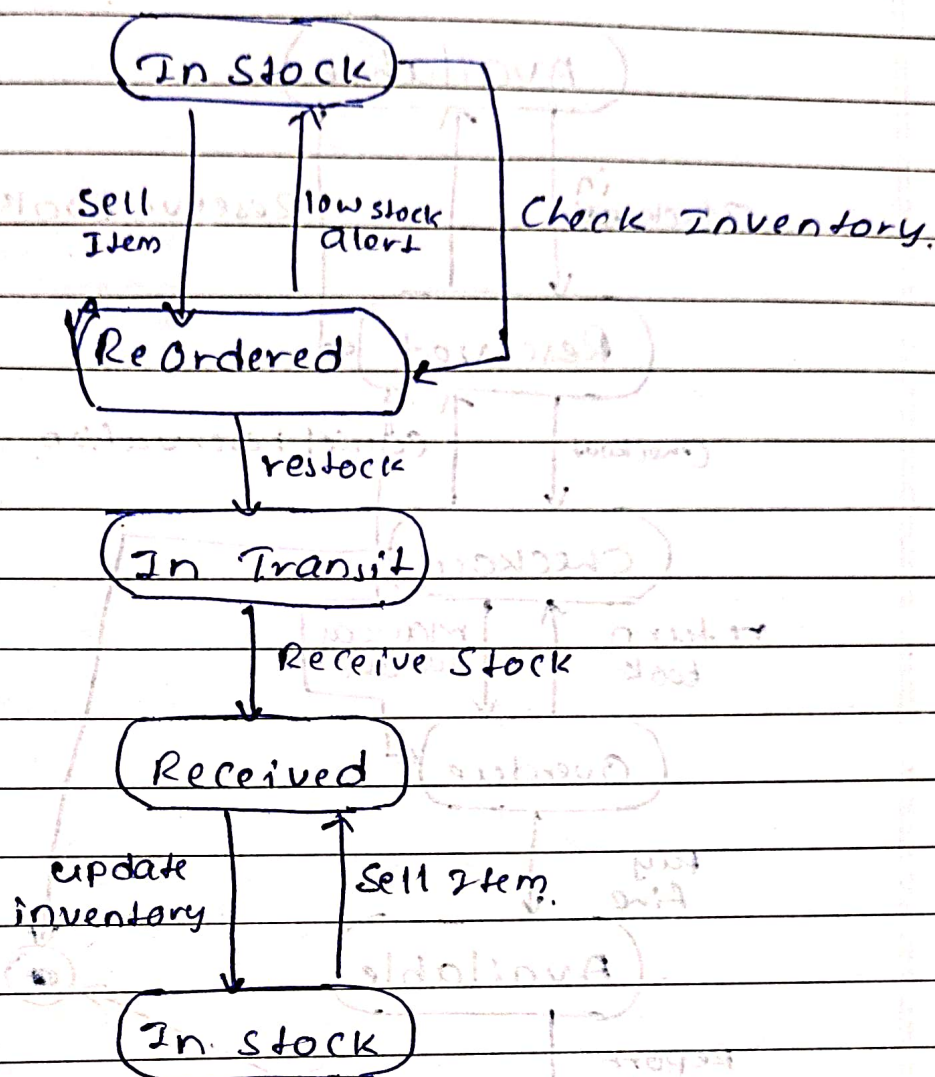 In Stock
Sell
Item
low stock
alert
Check Inventory.
ReOrdered
restock
In Transit
Receive Stock
Received
update
inventory
Sell Item.
In. Stock